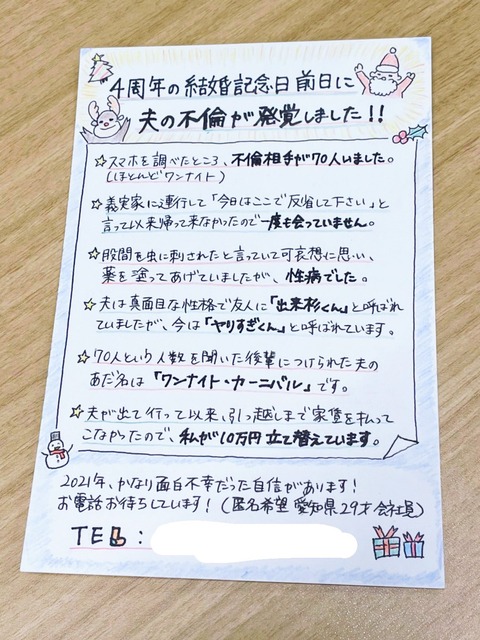 4周年の結婚記念日前日に
夫の不倫が発覚しました!!
☆スマホを調べたところ、不倫相手が70人いました。
(ほとんどワンナイト)
☆義実家に連行して「今日はここで反省して下さい」と
言って以来帰って来なかったので一度も会っていません。
☆股間を虫に刺されたと言っていて可哀想に思い、
薬を塗ってあげていましたが、性病でした。
☆夫は真面目な性格で友人に「出来杉くん」と呼ばれ
ていましたが、今は「ヤりすぎくん」と呼ばれています。
☆70人という人数を聞いた後輩につけられた夫の
あだ名は「ワンナイト・カーニバル」です。
☆夫が出て行って以来、引っ越しまで家賃を払って
こなかったので、私が10万円立て替えています。
2021年、かなり面白不幸だった自信があります!
お電話お待ちしています!(匿名希望 愛知県29才 会社員)
TEL: